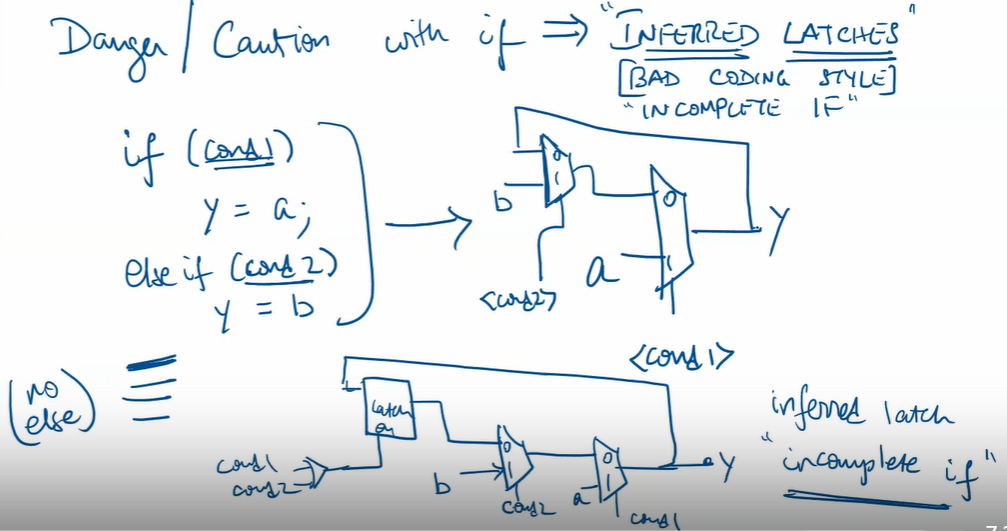 Danger / Caution with if ⇒ "INFERRED LATCHES"
[BAD CODING STYLE]
"INCOMPLETE IF"
if (cond1)
y = a;
else if (cond2)
y = b
0
1
b
<cond2>
0
1
a
y
<cond1>
(no else)
latch
en
cond1
cond2
0
1
b
cond2
0
1
a
cond1
y
inferred latch
"incomplete if"